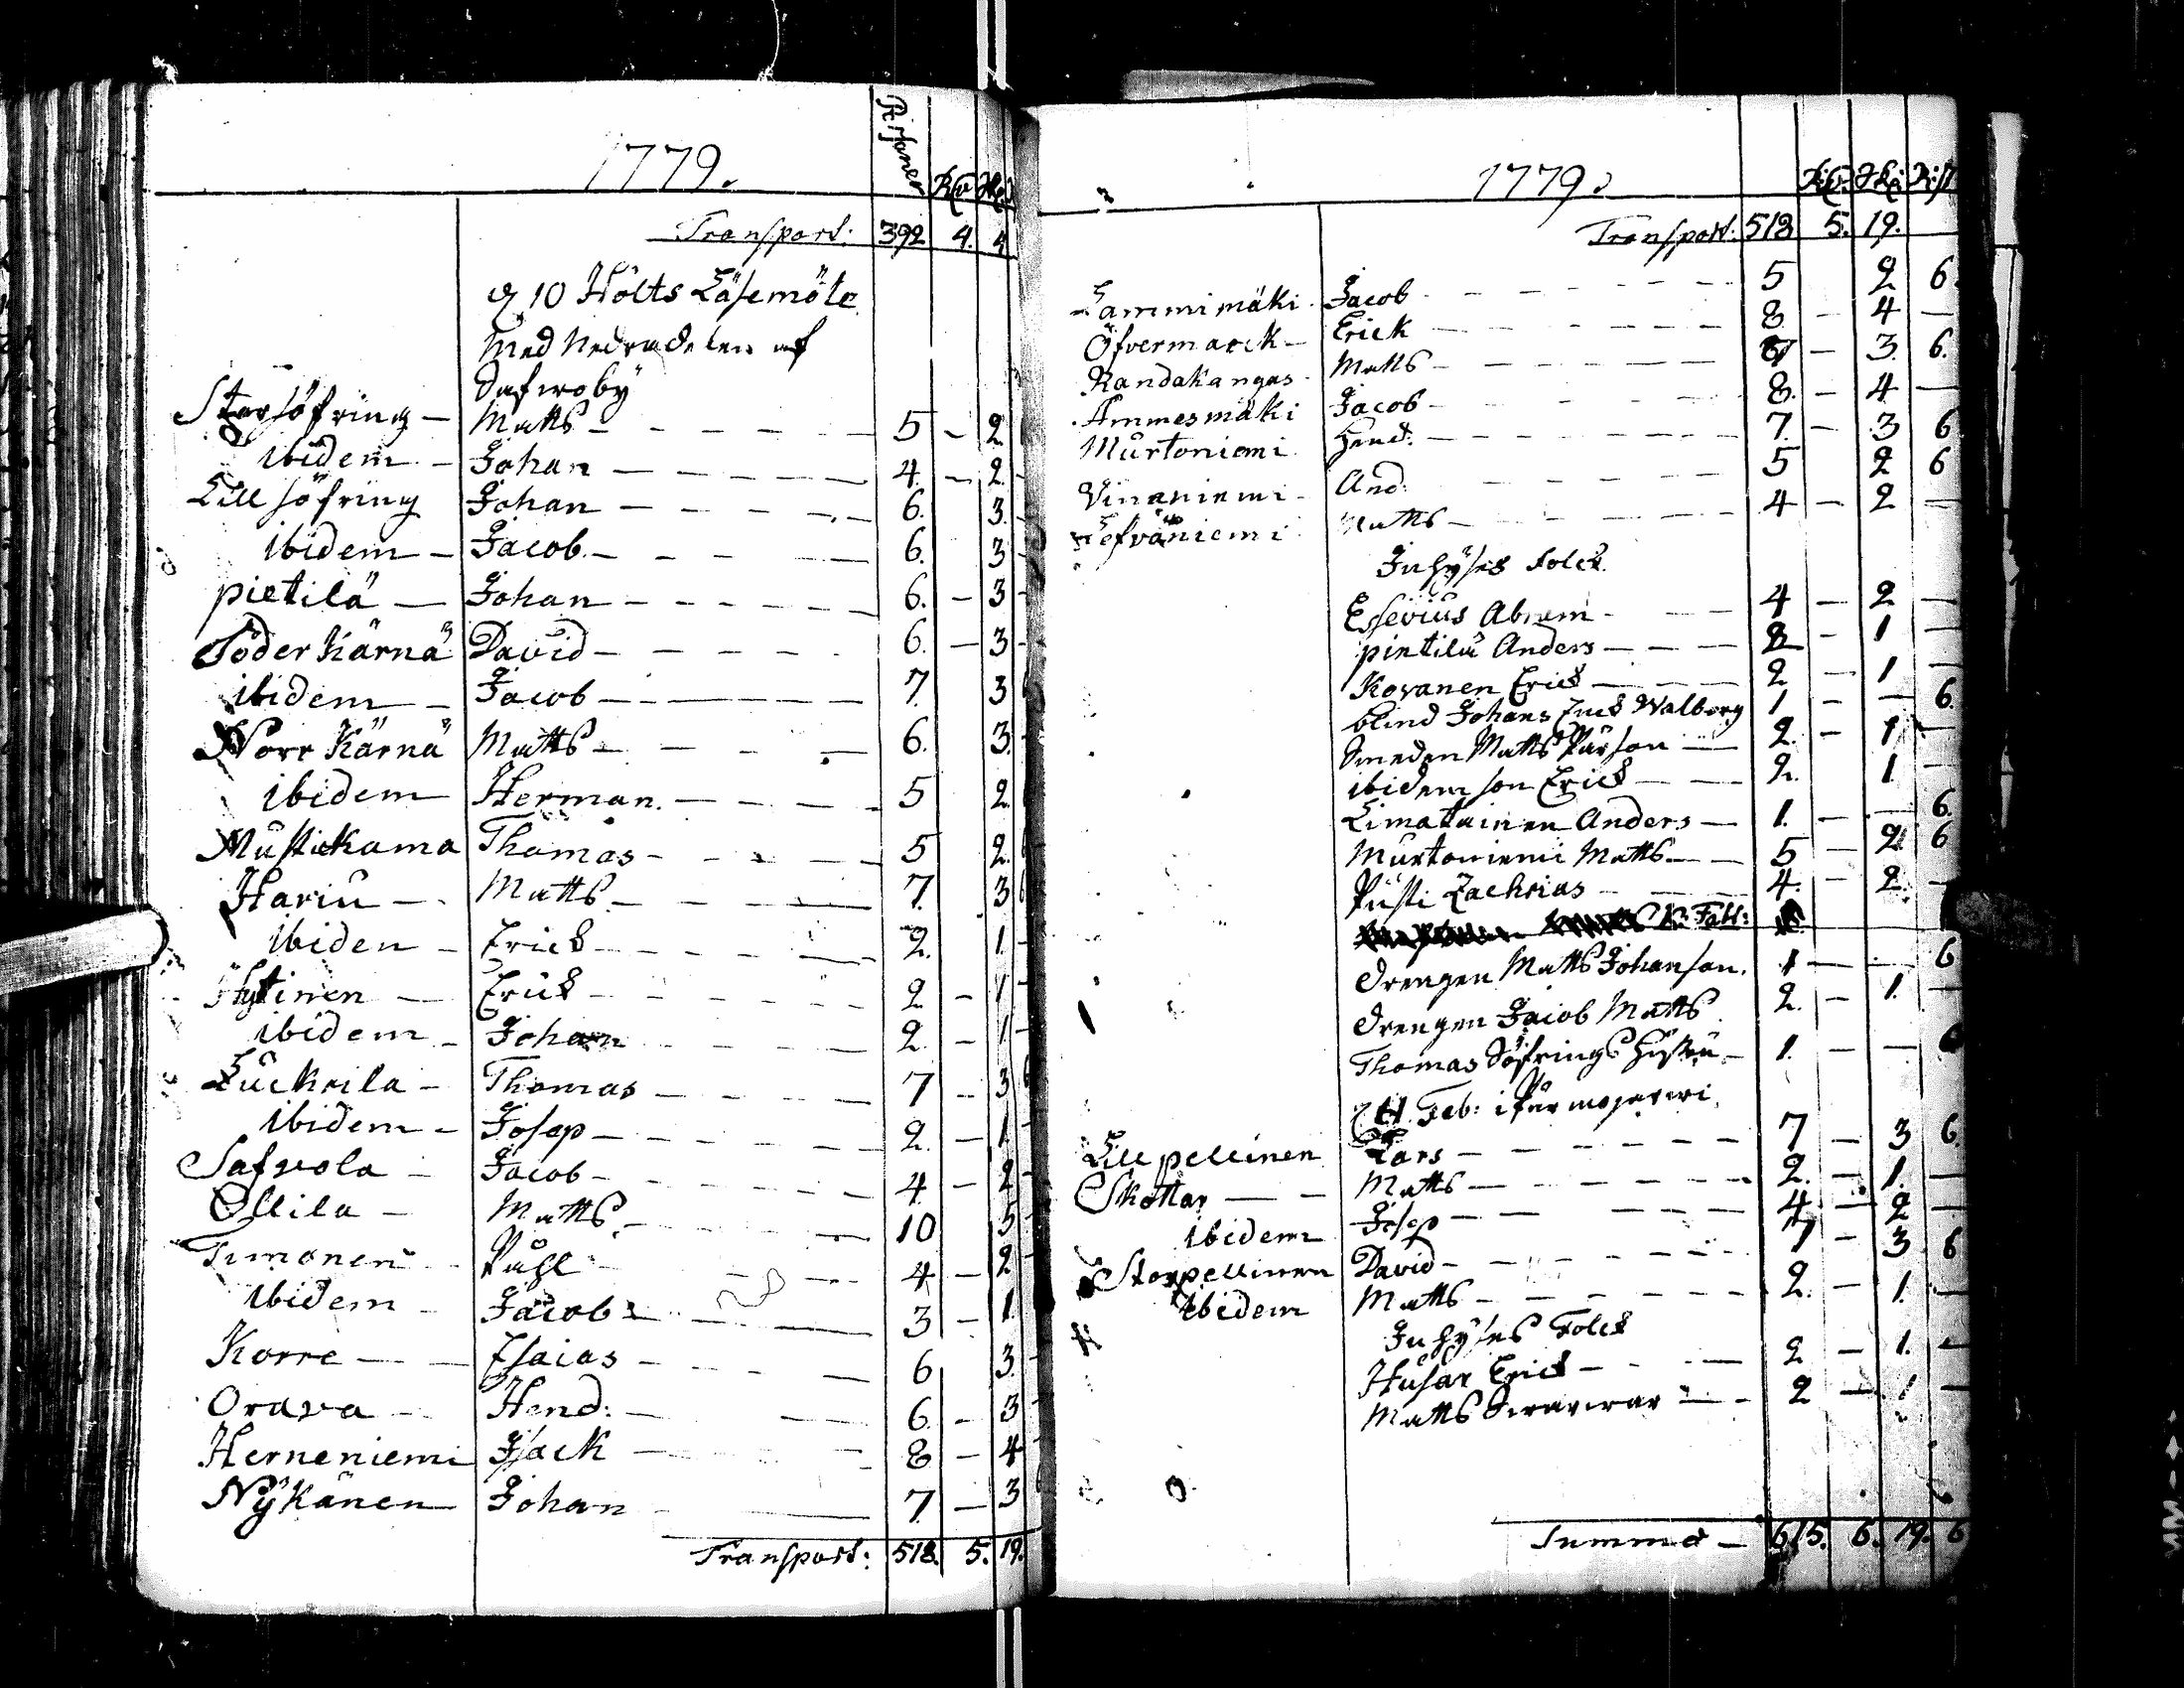 1779.
Persone͞r R͞d Sk:
Transport: 392 4. 4
d 10 Hölts Läsemöte
med Nedredelen af
Safwoby
Storsöfring — Matts — 5 — 2
ibidem — Johan — 4. — 2
Lill söfring Johan — 6. 3.
ibidem — Jacob — 6. 3
pietilä — Johan — 6. — 3
Söder Kärnä David — 6. — 3
ibidem — Jacob — 7. 3
Norr Kärnä Matts — 6. 3.
ibidem Herman. — 5 2.
Mustickama Thomas — 5 2.
Hariu — Matts — 7. 3
ibiden — Erick — 2. 1.
Hytinen — Erick — 2 — 1
ibidem — Johan 2. — 1
Luckrila — Thomas — 7 — 3
ibidem — Josep — 2. — 1.
Safvola — Jacob — 4. — 2
Ollila — Matts — 10 5
Timonen — Påhl — 4 — 2
ibidem — Jacob — 3 — 1.
Korre — Esaias — 6 3.
Orava — Hend: — 6. — 3
Herneniemi Isack — 8 — 4
Nÿkänen Johan — 7. — 3
Transport: 518. 5. 19.
1779.
Transport: 518 5. 19.
Lammimäki Jacob — 5 2 6.
Öfvermarck — Erick — 8. — 4 —
Randakangas Matts — 3. 6.
Ammesmäki Jacob — 8. — 4 —
Murtoniemi Hend: — 7. — 3 6
Vinaniemi And: — 5 2 6
Lefväniemi Matts — 4 — 2 —
Inhÿses Folck
Essevius Abram — 4 — 2 —
pietilä Anders — 2 — 1 —
Kovanen Erick — 2 — 1 —
blind Johans Enck Walborg 1 — — 6.
Smeden Matts Pärson — 2. — 1 —
ibidem son Erick — 2. 1. —
Limatainen Anders — 1. — — 6.
Murtoniemi Matts — 5 — 2 6
Pusti Zachrias — 4. — 2. —
Drengen Matts Johanson. 1 — 6
Drengen Jacob Matts 2. — 1. —
Thomas Söfrings Hustru — 1. — — 6
d 11. Feb: i Purmojarwi.
Lill pellinen Lars — 7 — 3 6.
Skottar — Matts — 2. — 1. —
ibidem Josep — 4 — 2 —
Storpellinen David — 7 — 3 6
ibidem Matts — 2. — 1. —
Inhÿses Folck
Husar Erick — 2 — 1. —
Matts Swarwar — 2 — 1 —
Summa — 615. 6. 19. 6